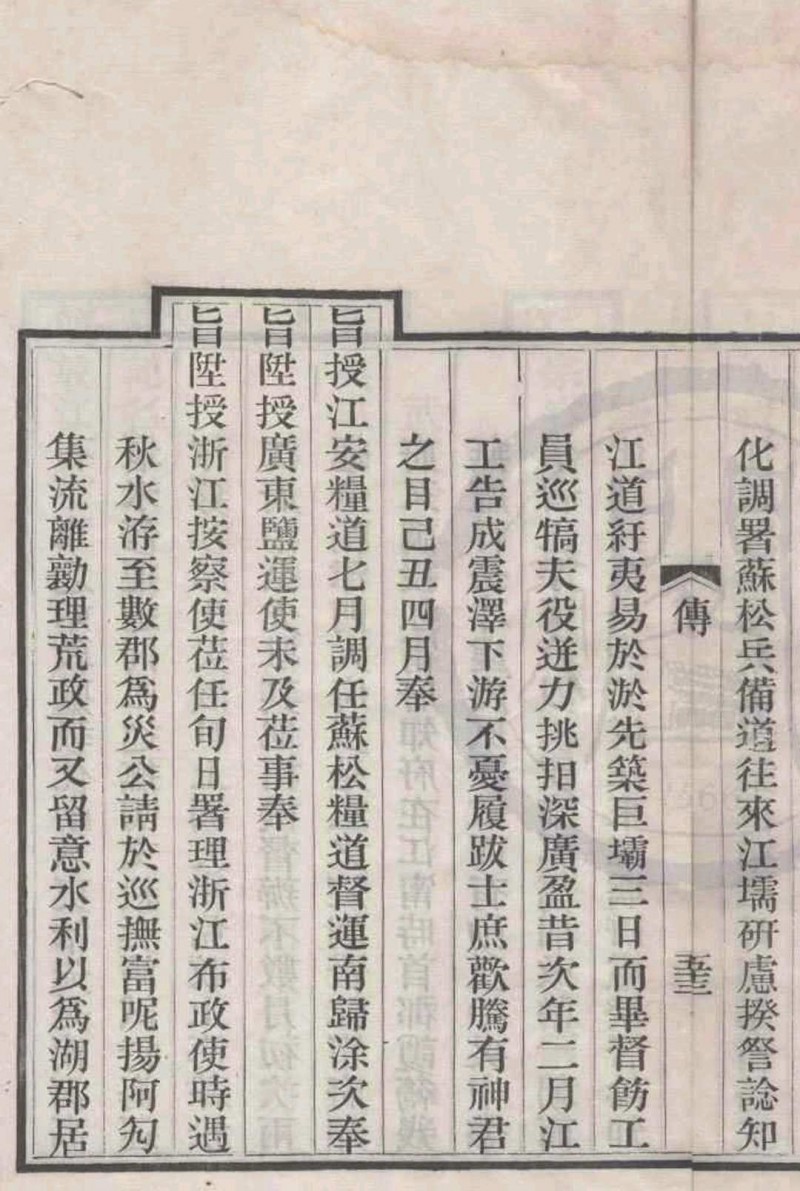 化調署蘇松兵備道往來江壖研慮揆詧諗知
傳
五十三
江道紆夷易於淤先築巨壩三日而畢督飭工
員巡犒夫役迸力挑抇深廣盈昔次年二月江
工告成震澤下游不憂履跋士庶歡騰有神君
之目己丑四月奉
旨授江安糧道七月調任蘇松糧道督運南歸涂次奉
旨陞授廣東鹽運使未及莅事奉
旨陞授浙江按察使莅任旬日署理浙江布政使時遇
秋水洊至數郡爲災公請於巡撫富呢揚阿匃
集流離勷理荒政而又留意水利以爲湖郡居